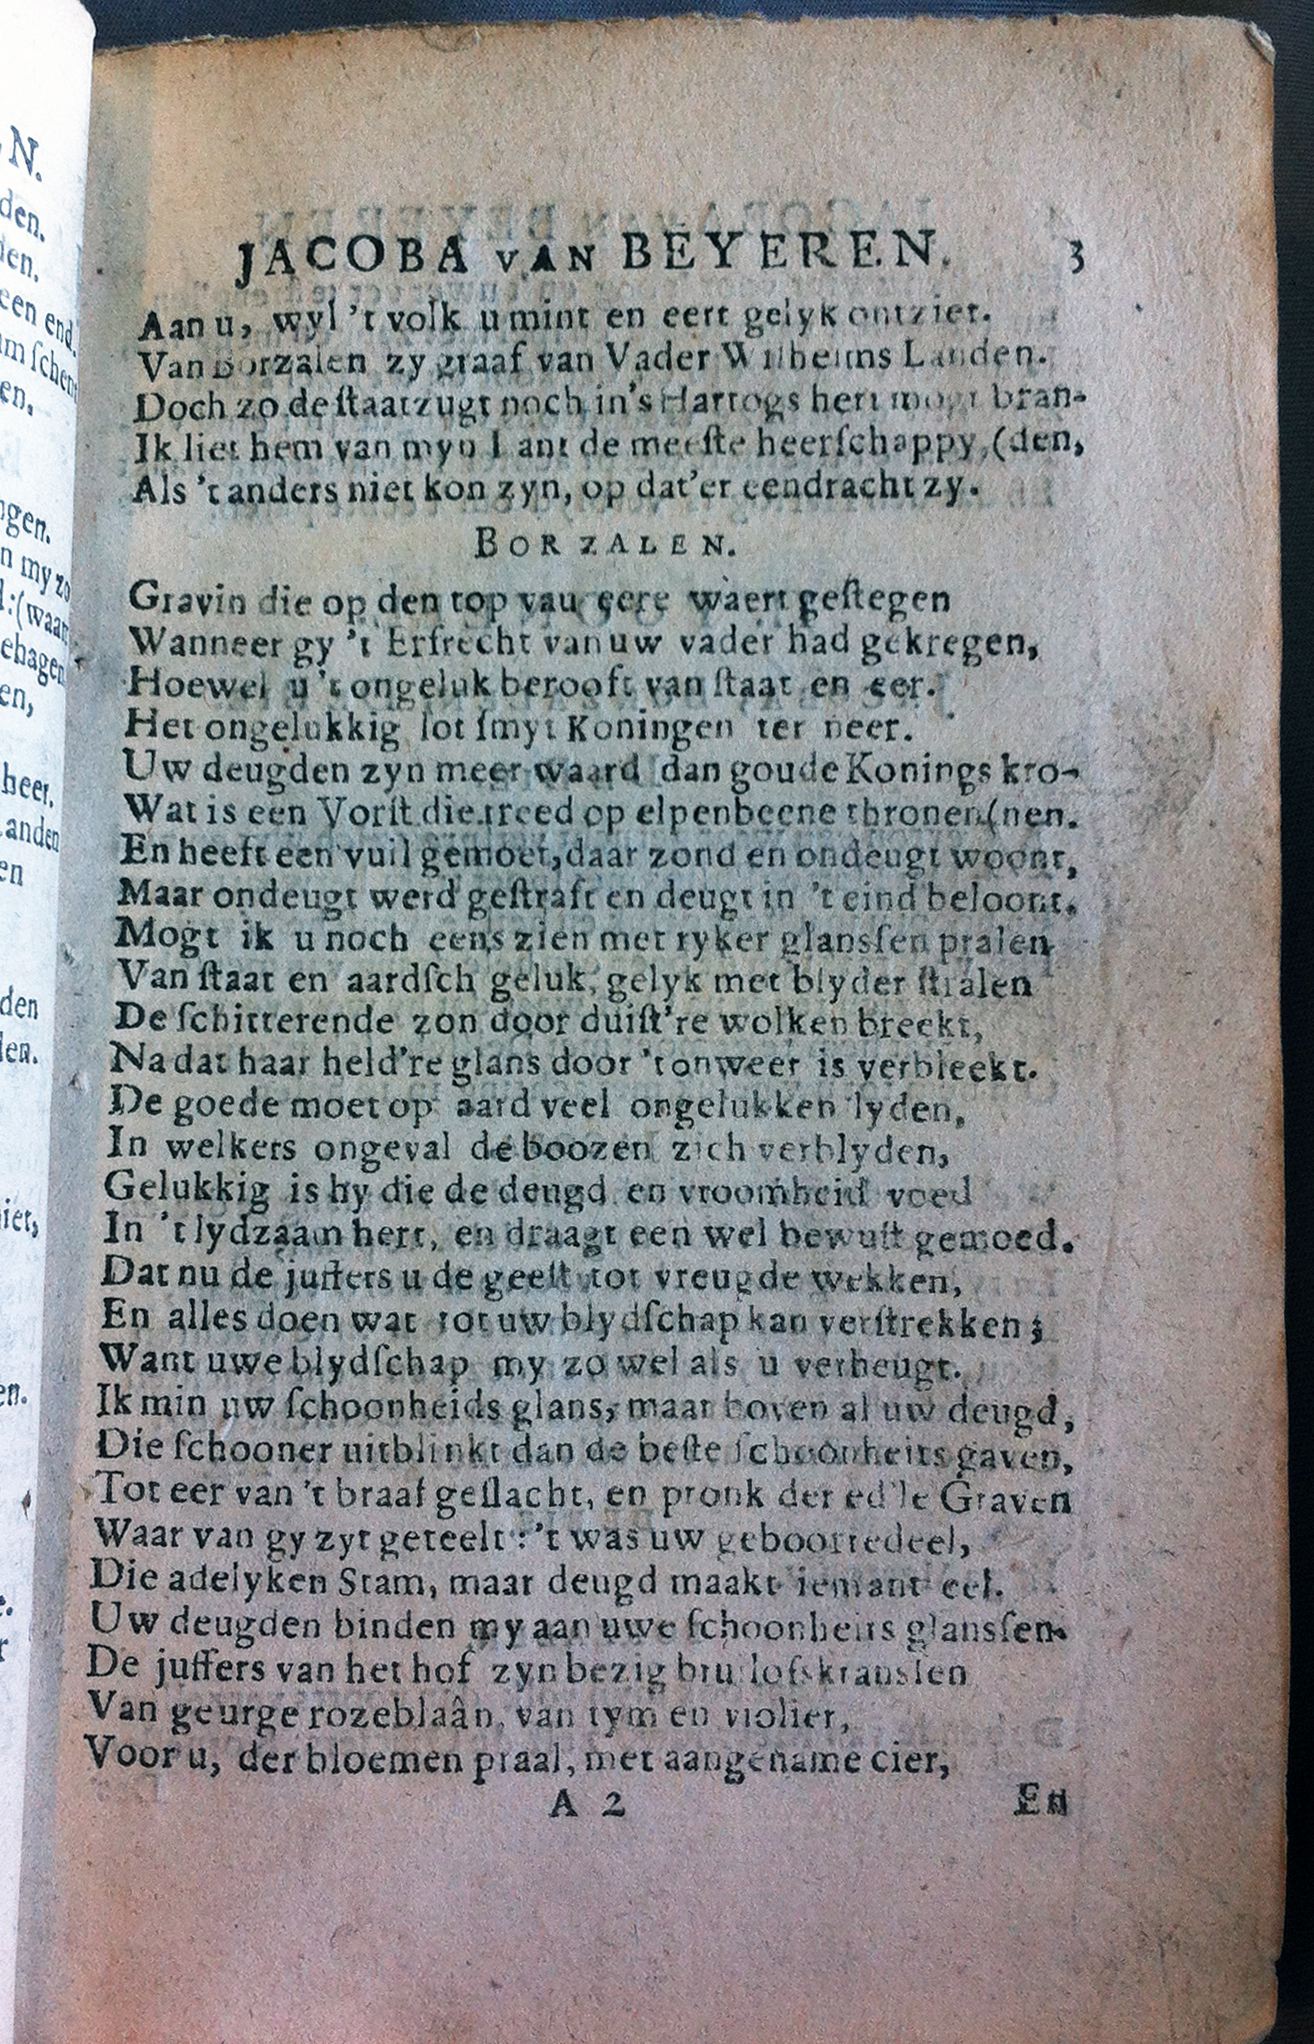 JACOBA VAN BEYEREN. 3
Aan u, wyl 't volk u mint en eert gelyk ontziet.
Van Borzalen zy graaf van Vader Wilhelms Landen.
Doch zo de ſtaatzugt noch in's Hartogs hert mogt bran-
Ik liet hem van myn Lant de meeſte heerſchappy, (den,
Als 't anders niet kon zyn, op dat'er eendracht zy.
BORZALEN.
Gravin die op den top vau eere waert geſtegen
Wanneer gy 't Erfrecht van uw vader had gekregen,
Hoewel u 't ongeluk berooft van ſtaat en eer.
Het ongelukkig lot ſmyt Koningen ter neer.
Uw deugden zyn meer waard dan goude Konings kro-
Wat is een Vorſt die treed op elpenbeene thronen (nen.
En heeft een vuil gemoet, daar zond en ondeugt woont,
Maar ondeugt werd geſtraft en deugt in 't eind beloont.
Mogt ik u noch eens zien met ryker glansſen pralen
Van ſtaat en aardſch geluk, gelyk met blyder ſtralen
De ſchitterende zon door duiſt're wolken breekt,
Na dat haar held're glans door 't onweer is verbleekt.
De goede moet op aard veel ongelukken lyden,
In welkers ongeval de boozen zich verblyden,
Gelukkig is hy die de deugd en vroomheid voed
In 't lydzaam hert, en draagt een wel bewuſt gemoed.
Dat nu de juffers u de geeſt tot vreugde wekken,
En alles doen wat tot uw blydſchap kan verſtrekken;
Want uwe blydſchap my zo wel als u verheugt.
Ik min uw ſchoonheids glans, maar boven al uw deugd,
Die ſchooner uitblinkt dan de beſte ſchoonheits gaven,
Tot eer van 't braaf geſlacht, en pronk der ed'le Graven
Waar van gy zyt geteelt: 't was uw geboortedeel,
Die adelyken Stam, maar deugd maakt iemant eel.
Uw deugden binden my aan uwe ſchoonheits glansſen.
De juffers van het hof zyn bezig bruilofskransſen
Van geurge rozeblaân, van tym en violier,
Voor u, der bloemen praal, met aangename cier,
A 2 En